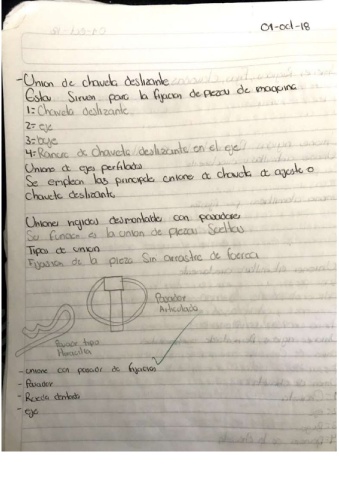 01-oct-18
-Union de chaveta deslizante
Estas Sirven para la fijacion de piezas de maquina
1= Chaveta deslizante
2= eje
3= buje
4= Ranura de chaveta deslizante en el eje
Unione de ejes perfilados
Se emplean las principale unione de chaveta de ajuste o
chaveta deslizante
Uniones rigidas desmontable con pasadores
Su funcion es la union de piezas Sueltas
Tipos de union
Fijasion de la pieza Sin arrastre de fuerza
Pasador
Articulado
Pasador tipo
Horquilla
- unione con pasador de fijacion
- Pasador
- Rueda dentada
- eje